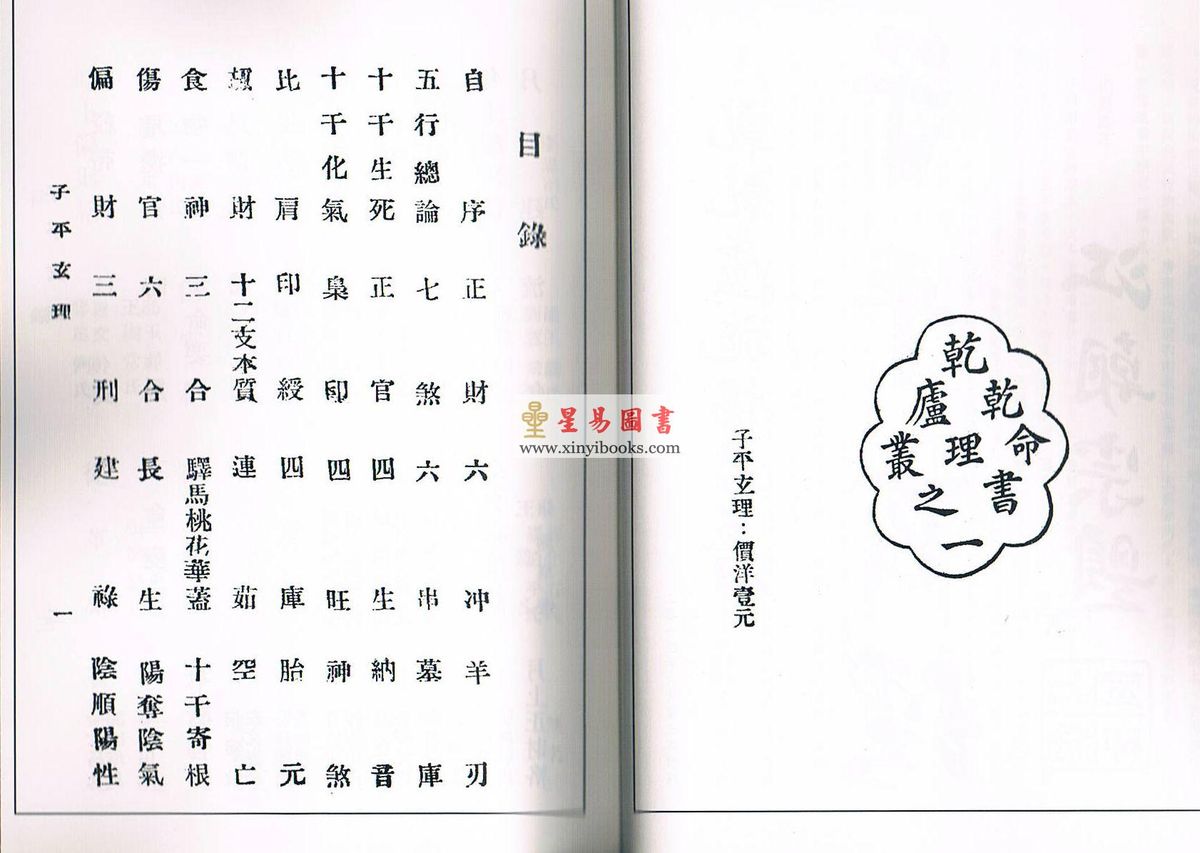 乾乾廬命理叢書之一
子平玄理：價洋壹元
目錄
自序 正財 六冲 羊刃
五行總論 七煞 六串 墓庫
十干生死 正官 四生 納音
十干化氣 梟印 四旺 神煞
比肩 印綬 四庫 胎元
財 十二支本質 連茹 空亡
食神 三合 驛馬桃花華蓋 十干寄根
傷官 六合 長生 陽奪陰氣
偏財 三刑 建祿 陰順陽性
子平玄理 一
星易圖書
www.xinyibooks.com